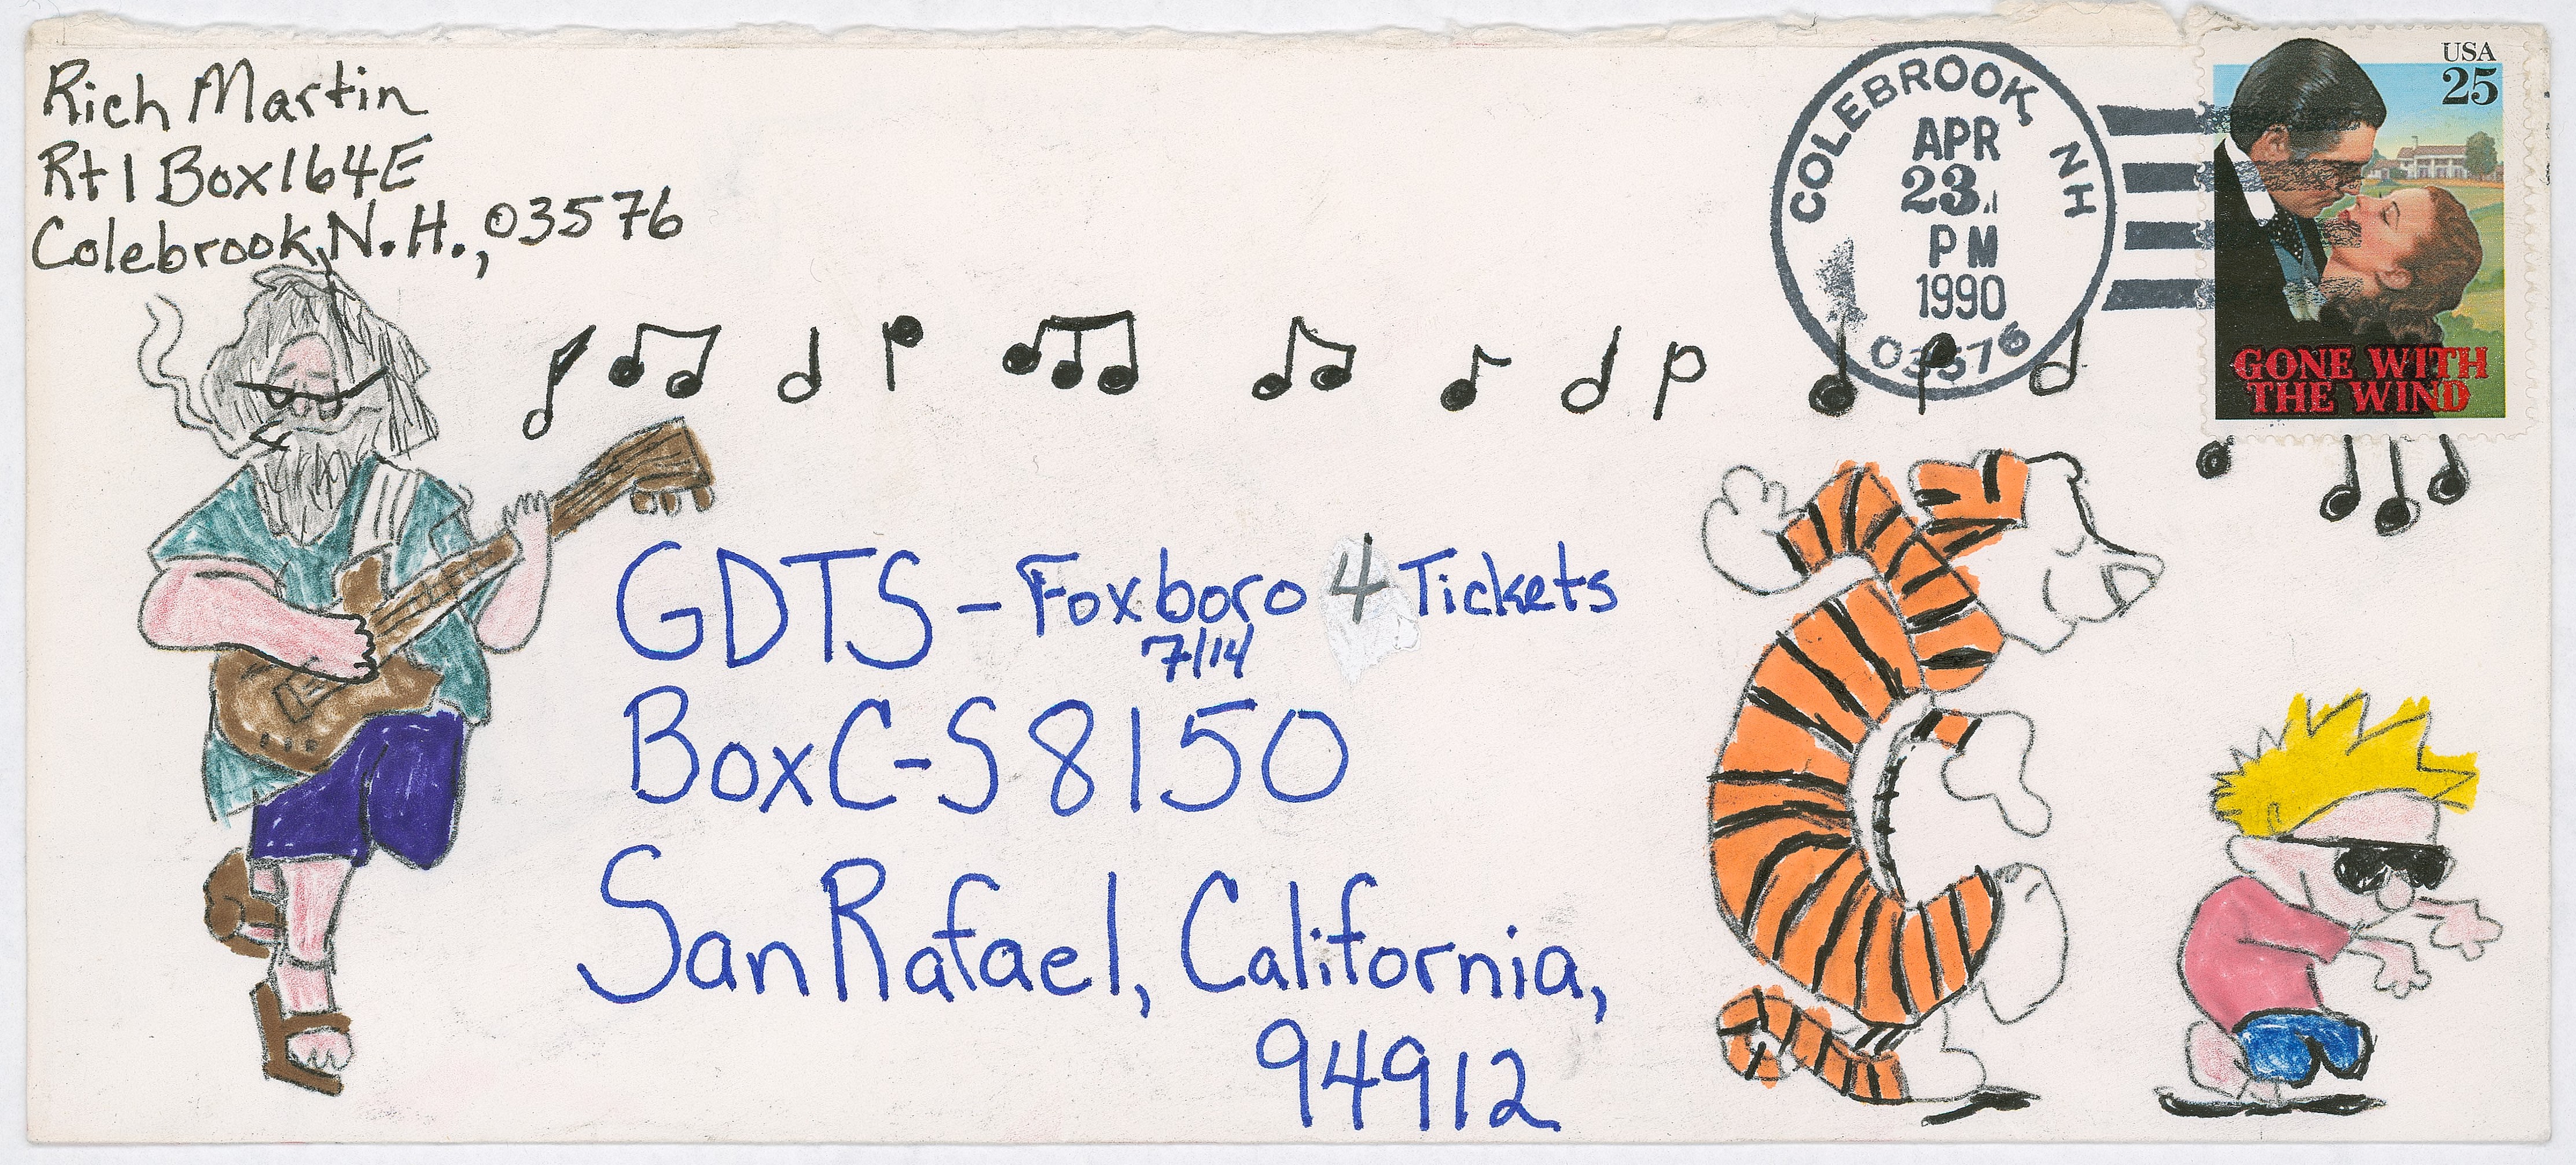 Rich Martin
Rt 1 Box 164E
Colebrook, N.H., 03576
COLEBROOK NH
APR
23
PM
1990
03576
USA
25
GONE WITH
THE WIND
GDTS - Foxboro 4 Tickets
7/14
Box C-S 8150
San Rafael, California,
94912